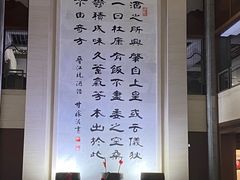 酒之所興肇自上皇或云儀狄
一曰杜康有飯不盡委之空桑
鬱積成味久蓄氣芳本出於此
不由奇方
晉江統酒誥